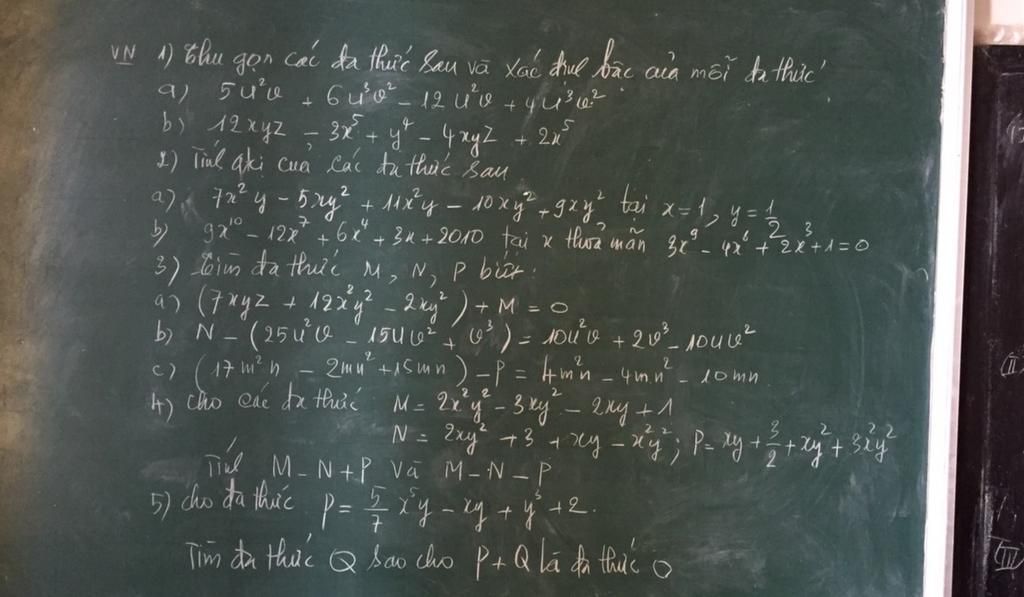 VN 1) Thu gọn các đa thức sau và xác định bậc của mỗi đa thức
a) 5u²v + 6u³v² - 12u²v + 4u³v²
b) 12xyz - 3x⁵ + y⁴ - 4xyz + 2x⁵
2) Tính giá trị của các đa thức sau
a) 7x²y - 5xy² + 11x²y - 10xy² + 9xy² tại x=1, y=1/2
b) 9x¹⁰ - 12x⁷ + 6x⁴ + 3x + 2010 tại x thỏa mãn 3x⁹ - 4x⁶ + 2x³ + 1 = 0
3) Tìm đa thức M, N, P biết:
a) (7xyz + 12x²y² - 2xy²) + M = 0
b) N - (25u²v - 15uv² + v³) = 10u²v + 2v³ - 10uv²
c) (17m²n - 2mn² + 15mn) - P = 4m²n - 4mn² - 10mn
4) cho các đa thức M = 2x²y² - 3xy² - 2xy + 1
N = 2xy² + 3 + xy - x²y²; P = xy + 3/2 + xy² + 3x²y²
Tính M - N + P và M - N - P
5) cho đa thức P = 5/7 x⁵y - xy + y³ + 2.
Tìm đa thức Q sao cho P + Q là đa thức 0
(II)
(III)